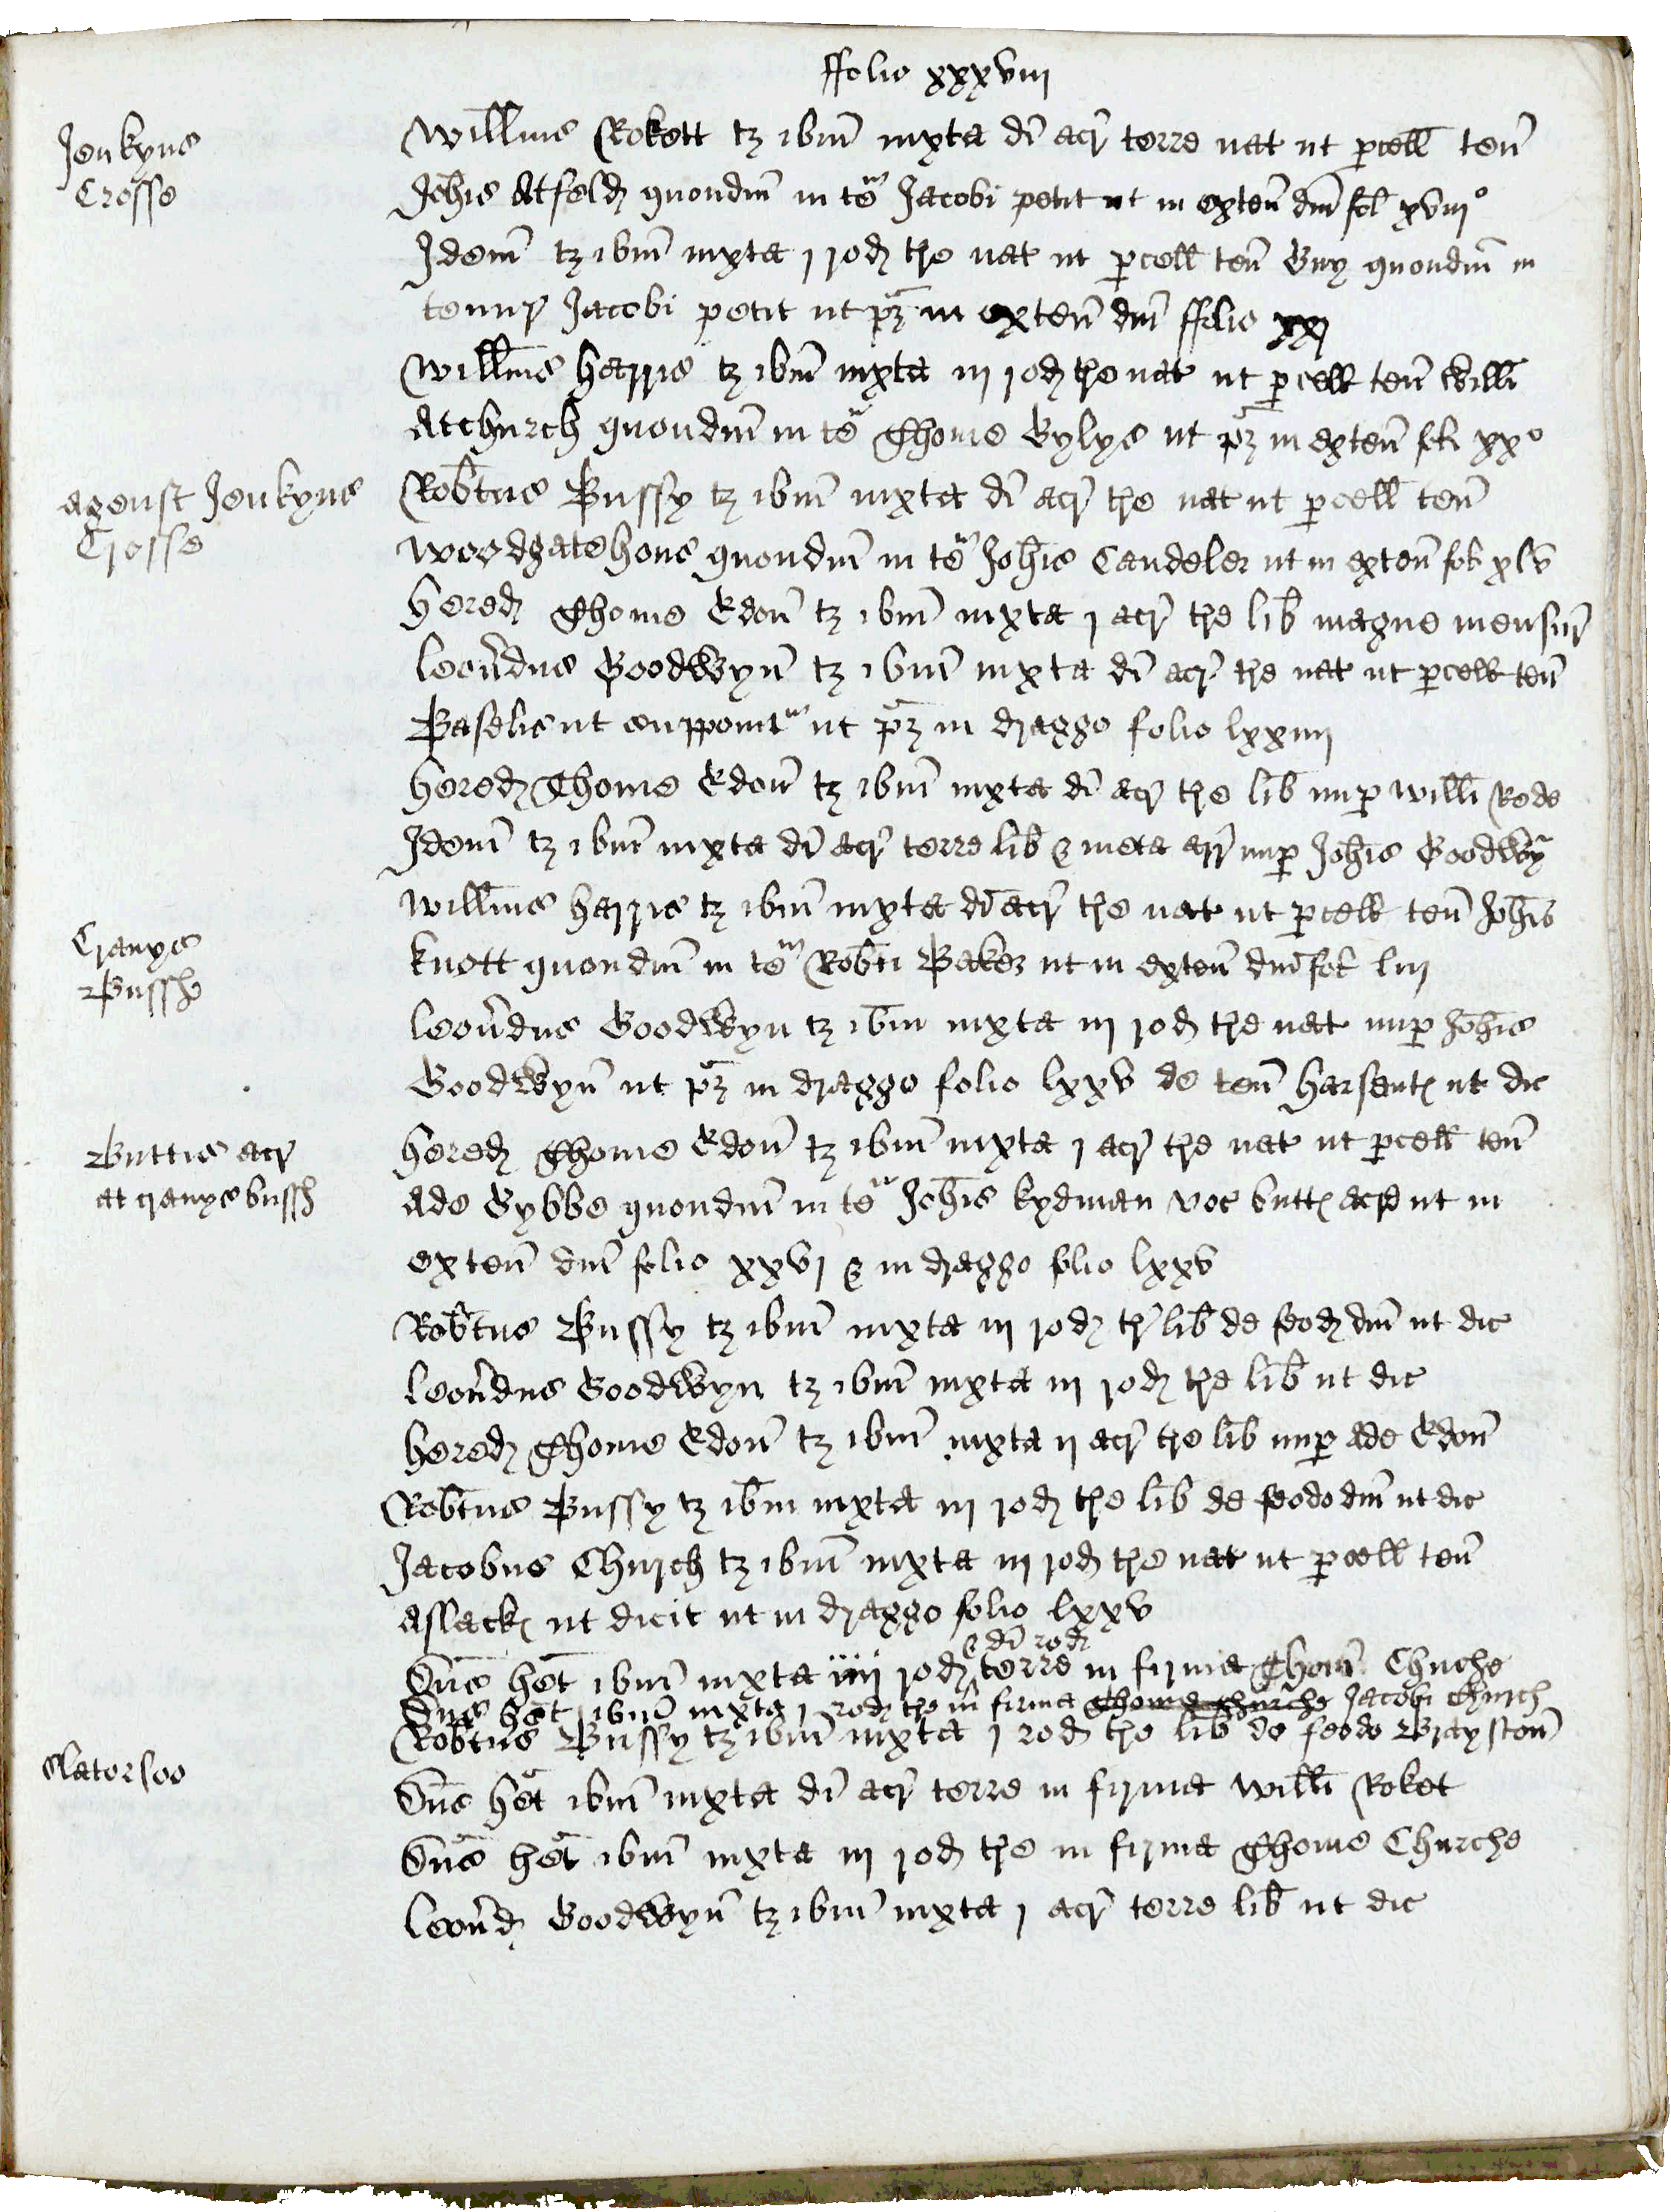 ffolio xxxviij
Jenkyns
Crosse
Willms Rokett tz ibm iuxta di acr terre nat ut pcell ten
Johis Atfeld quondm in te Jacobi petit ut in exten dm fol xviijo
Idem tz ibm iuxta j rod tre nat ut pcell ten Guy quondm in
tenur Jacobi petit ut pz in exten dm ffolio xxj
Willms harris tz ibm iuxta iij rod tre nat ut pcell ten Willi
Atchurch quondm in te Thome Gylys ut pz in exten fol xxo
agenst Jenkyns
Crosse
Robtus Bussy tz ibm iuxta di acr tre nat ut pcell ten
Woodgatehous quondm in te Johis Candeler ut in exten fol xlv
hered Thome Edon tz ibm iuxta j acr tre lib magne mensur
Leonrdus Goodwyn tz ibm iuxta di acr tre nat ut pcell ten
Baselis ut ut pz in dragge folio lxxiiij
hered Thome Edon tz ibm iuxta di acr tre lib nup Willi Rede
Idem tz ibm iuxta di acr terre lib & meta nup Johis Goodwy
Willms harris tz ibm iuxta di acr tre nat ut pcell ten Johis
Cranys
Bussh
knott quondm in te Robti Baker ut in exten dm fol liij
Leonrdus Goodwyn tz ibm iuxta iij rod tre nat nup Johis
Goodwyn ut pz in dragge folio lxxv de ten harsent ut dic
Buttis acr
at cranys bussh
hered Thome Edon tz ibm iuxta j acr tre nat ut pcell ten
Ade Gybbe quondm in te Johis kydman voc butt acre ut in
exten dm folio xxvj & in dragge folio lxxv
Robtus Bussy tz ibm iuxta iij rod tr lib de feod dm ut dic
Leonrdus Goodwyn tz ibm iuxta iij rod tre lib ut dic
hered Thome Edon tz ibm iuxta ij acr tre lib nup Ade Edon
Robtus Bussy tz ibm iuxta iij rod tre lib de feodo dm ut dic
Jacobus Church tz ibm iuxta iij rod tre nat ut pcell ten
Aslack ut dicit ut in dragge folio lxxv
& di rod
Dns het ibm iuxta iiij rod terre in firma Thom Churche
Dns het ibm iuxta j rod tre in firma Thome Churche Jacobi Church
Robtus Bussy tz ibm iuxta j rod tre lib de feodo Grayston
Slatersoo
Dns het ibm iuxta di acr terre in firma Willi Roket
Dns het ibm iuxta iij rod tre in firma Thome Churche
Leonrd Goodwyn tz ibm iuxta j acr terre lib ut dic